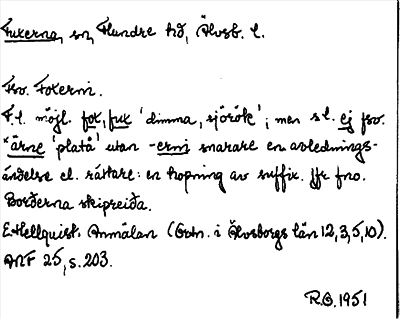 Fuxerna, sn, Flundre hd, Älvsb. l.
Fsv. Foxerni.
F.l. möjl. fox, fuk 'dimma, sjörök'; men s.l. ej fsv.
*ärne 'platå' utan -erni snarare en avlednings-
ändelse el. rättare: en hopning av suffix. Jfr fno.
Borðerna skipreiða.
E. Hellquist. Anmälan (Ortn. i Älvsborgs län 12, 3, 5, 10).
ANF 25, s. 203.
R.B. 1951